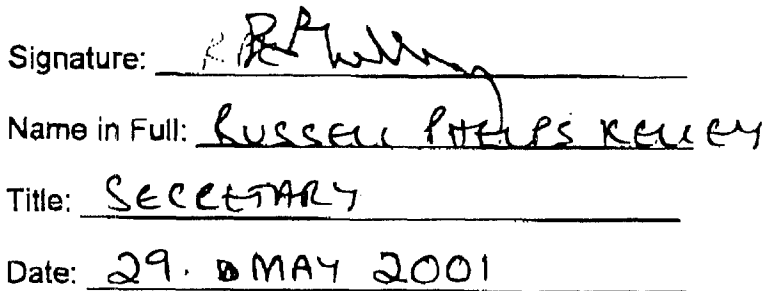 Signature:
Name in Full: RUSSELL PHELPS KELLEY
Title: SECRETARY
Date: 29. MAY 2001